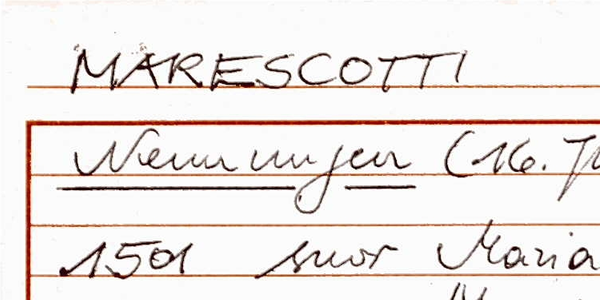 MARESCOTTI
Nennungen (16.
1501 suor Maria